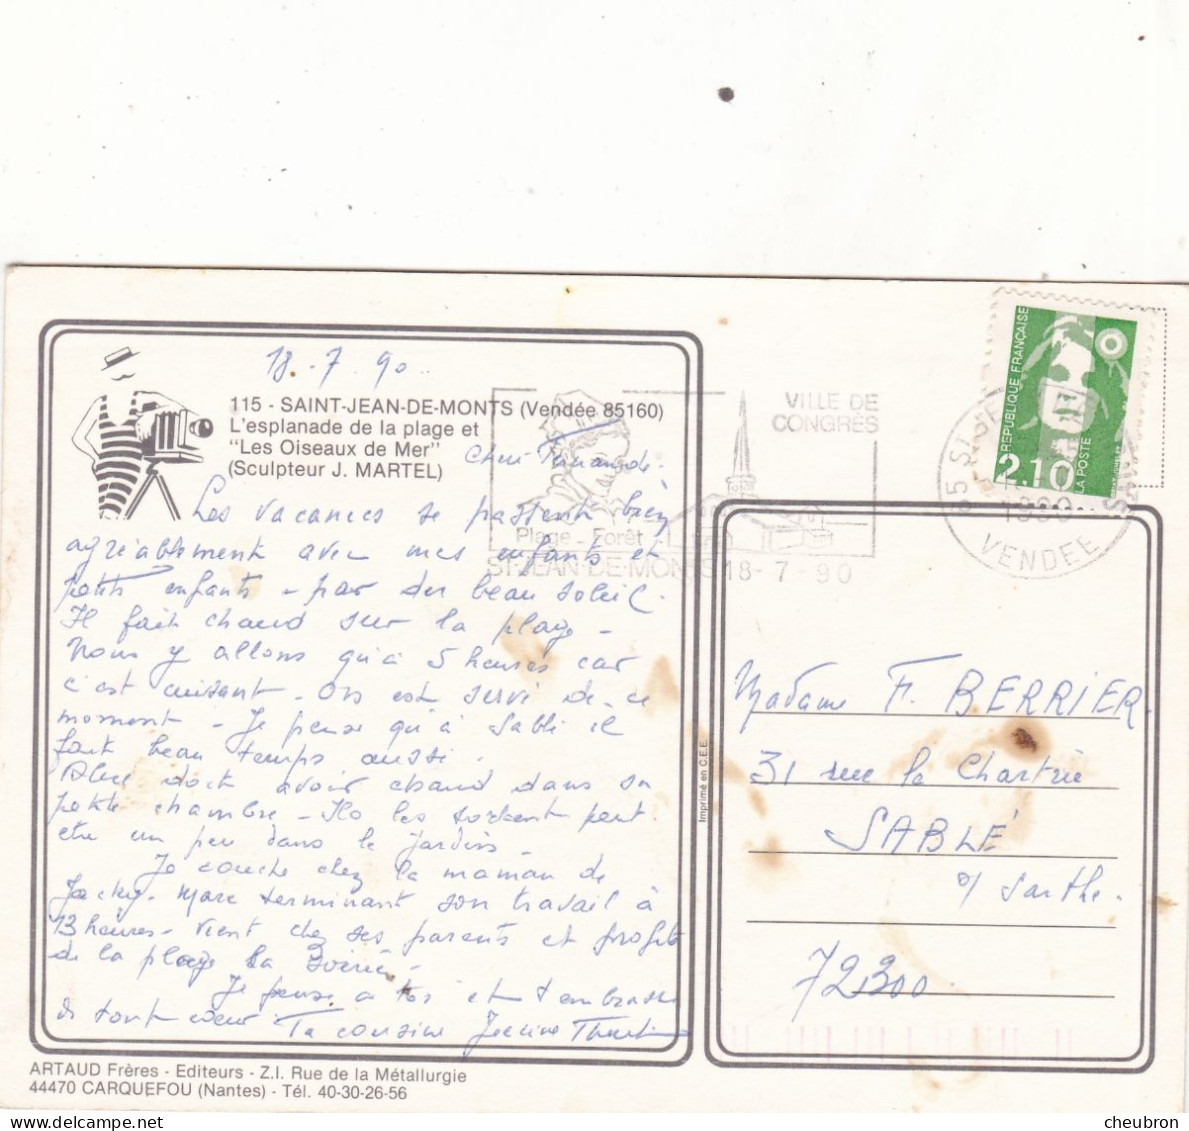 18.-7.90..
115 - SAINT-JEAN-DE-MONTS (Vendée 85160)
L'esplanade de la plage et
"Les Oiseaux de Mer"
(Sculpteur J. MARTEL)
Chère Fernande.
Les vacances se passent bien
agréablement avec mes enfants et
petits enfants - par du beau soleil.
Il fait chaud sur la plage -
Nous y allons qu'à 5 heures car
c'est cuisant - On est servi de-ce
moment - Je pense qu'à Sablé il
fait beau temps aussi.
doit avoir chaud dans sa
petite chambre - Ils les sortent peut.
être un peu dans le jardin -
Je couche chez la maman de
Jacky. Marc terminant son travail à
13 heures - vient chez ses parents et profite
de la plage la soirée.
Je pense à toi et t'embrasse
de tout cœur Ta cousine
VILLE DE
CONGRÈS
Plage - Forêt
ST-JEAN-DE-MONTS 18-7-90
85 ST JEAN
1990
VENDEE
REPUBLIQUE FRANÇAISE
2.10
LA POSTE
Madame F. BERRIER.
31 rue la Chartrie
SABLÉ
s/ Sarthe.
72300
Imprimé en C.E.E.
ARTAUD Frères - Editeurs - Z.I. Rue de la Métallurgie
44470 CARQUEFOU (Nantes) - Tél. 40-30-26-56
delcampe.net
cheubron